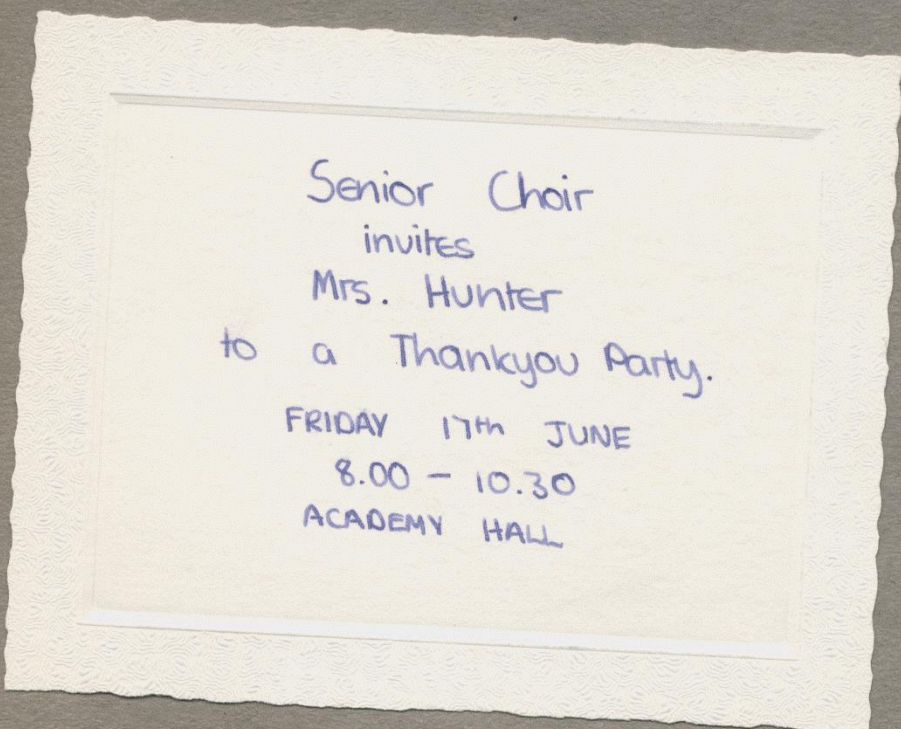 Senior Choir
invites
Mrs. Hunter
to a Thankyou Party.
FRIDAY 17th JUNE
8.00 - 10.30
ACADEMY HALL